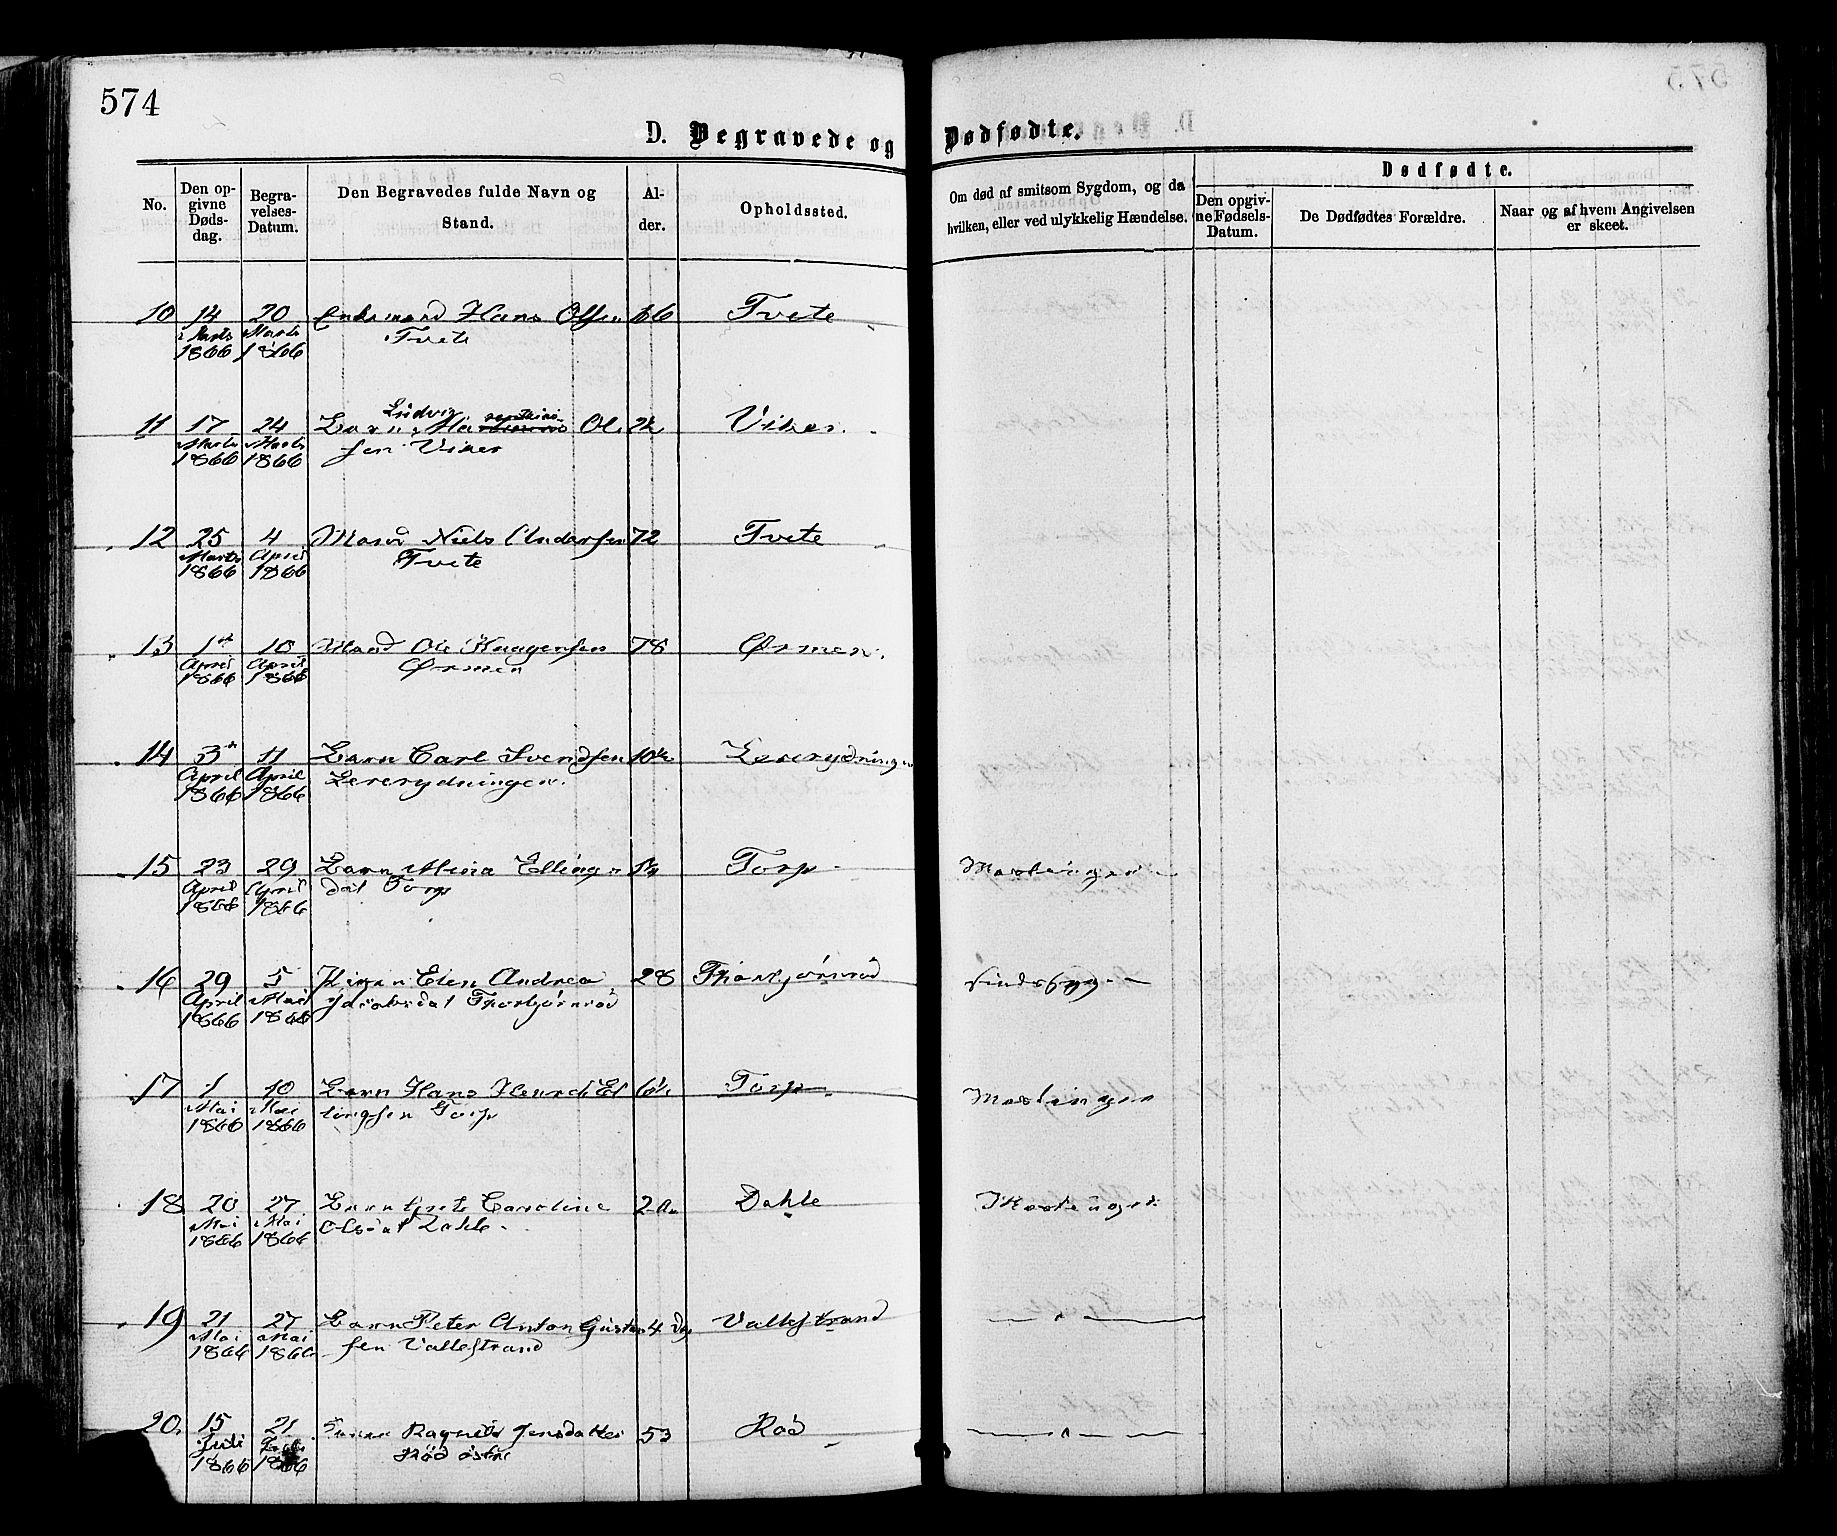 574
D. Begravede og Dødfødte.
No.
Den opgivne Dødsdag.
Begravelses-Datum.
Den Begravedes fulde Navn og Stand.
Alder.
Opholdssted.
Om død af smitsom Sygdom, og da hvilken, eller ved ulykkelig Hændelse.
Dødfødte.
Den opgivne Fødsels-Datum.
De Dødfødtes Forældre.
Naar og af hvem Angivelsen er skeet.
10 14 20 Enkemand Hans Olsen 66 Tvete
Marts Marts Tvete
1866 1866
11 17 24 Barn Ludvig Ol Viker.
Marts Marts sen Viker
1866 1866
12 25 4 Mand Niels Andersen 72 Tvete
Marts April Tvete
1866 1866
13 1st 10 Mand Ole Haagensen 78 Ørmen.
April April Ørmen
1866 1866
14 3 11 Barn Carl Svendsen Lererydningen
April April Lererydningen.
1866 1866
15 23 29 Barn Mina Ellings Torp Mæslinger
April April dat Torp
1866 1866
16 29 5 Elen Andrea 28 Thorbjørnrød Sindssyge
April Mai Jacobsdat Thorbjørnrød
1866 1866
17 1 10 Barn Hans Henrik El Torp Mæslinger
Mai Mai lingsen Torp
1866 1866
18 20 27 Barn Caroline 2 Dahle Mæslinger
Mai Mai Olsdat Dahle
1866 1866
19 21 27 Barn Peter Anton Gustav 4 Dg Vallestrand
Mai Mai sen Vallestrand
1866 1866
20. 15 21 Jensdatter 53 Rød
Juli Juli Rød østre
1866 1866